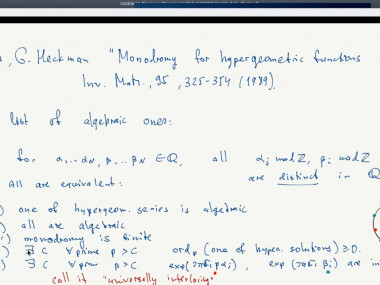 , G. Heckman "Monodromy for hypergeometric functions
Inv. Math., 95, 325-354 (1989).
list of algebraic ones:
for α₁...α_N, β₁...β_N ∈ ℚ, all αⱼ mod ℤ, βⱼ mod ℤ
are distinct in
All are equivalent:
) one of hypergeom. series is algebraic
) all are algebraic
) monodromy is finite
) ∃ C ∀ prime p > C ord_p (one of hyperg. solutions) ≥ 0.
) ∃ C ∀ prime p > C exp(2πi p αⱼ), exp(2πi p βⱼ) are in
call it "universally interlacing"